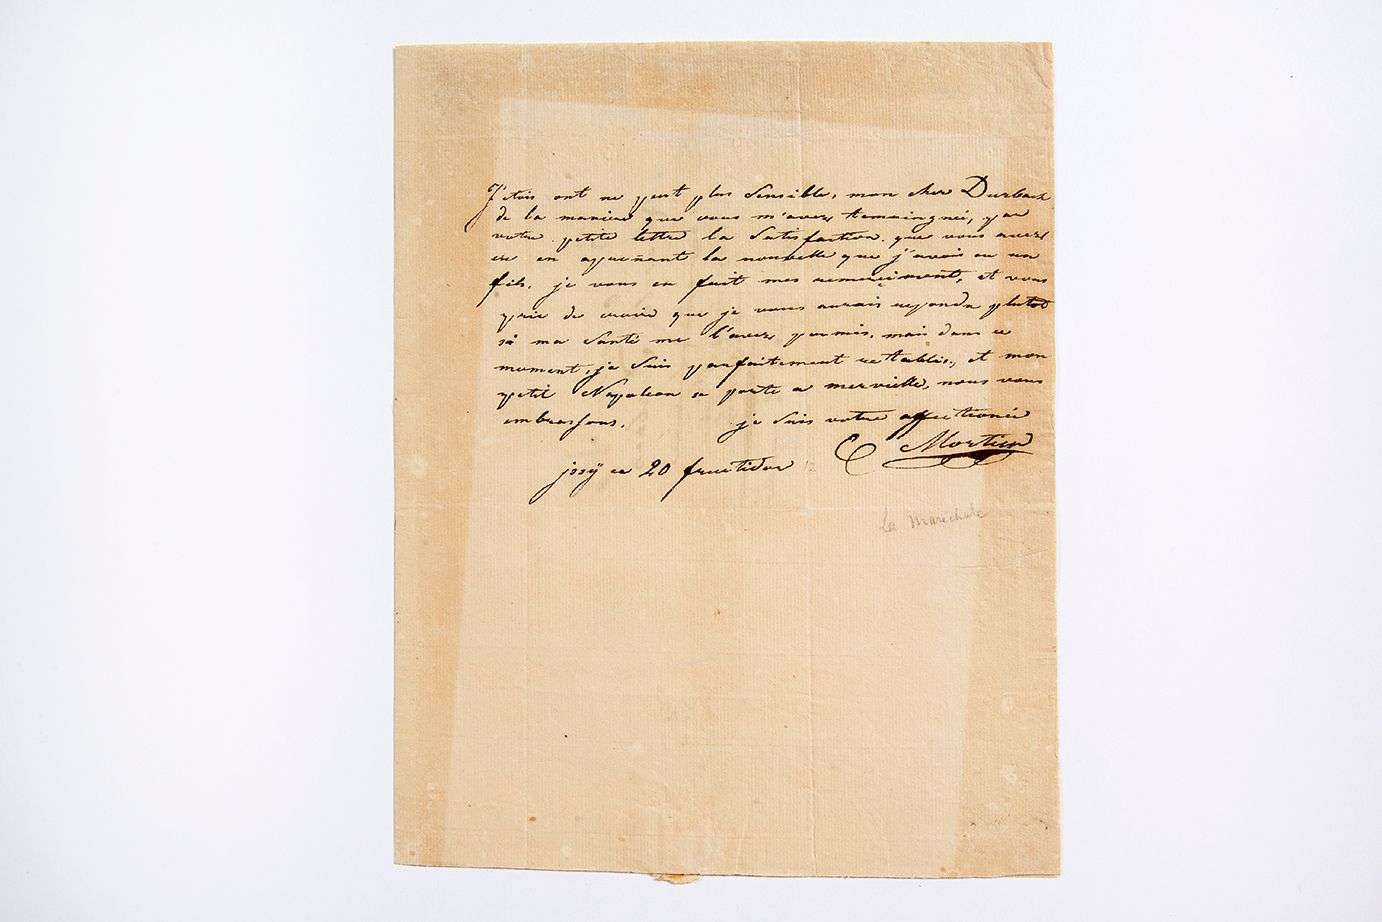 J'etois ont ne peut plus Sensible, mon cher Durbach
de la maniere que vous m'avez temaingnéi, par
votre petite lettre la Satisfaction que vous avez
eu en aprenant la nouvelle que j'avois eu un
fils. je vous en fait mes remerciment, et vous
prie de croire que je vous aurais reponda plutot
si ma Santé me l'avez permis. mais dans ce
moment, je Suis parfaitement retablis, et mon
petit Napoleon se porte a mervielle, nous vous
embrassons. je Suis votre affectionée
E Mortier
jssÿ ce 20 fructidor 12
La Maréchale